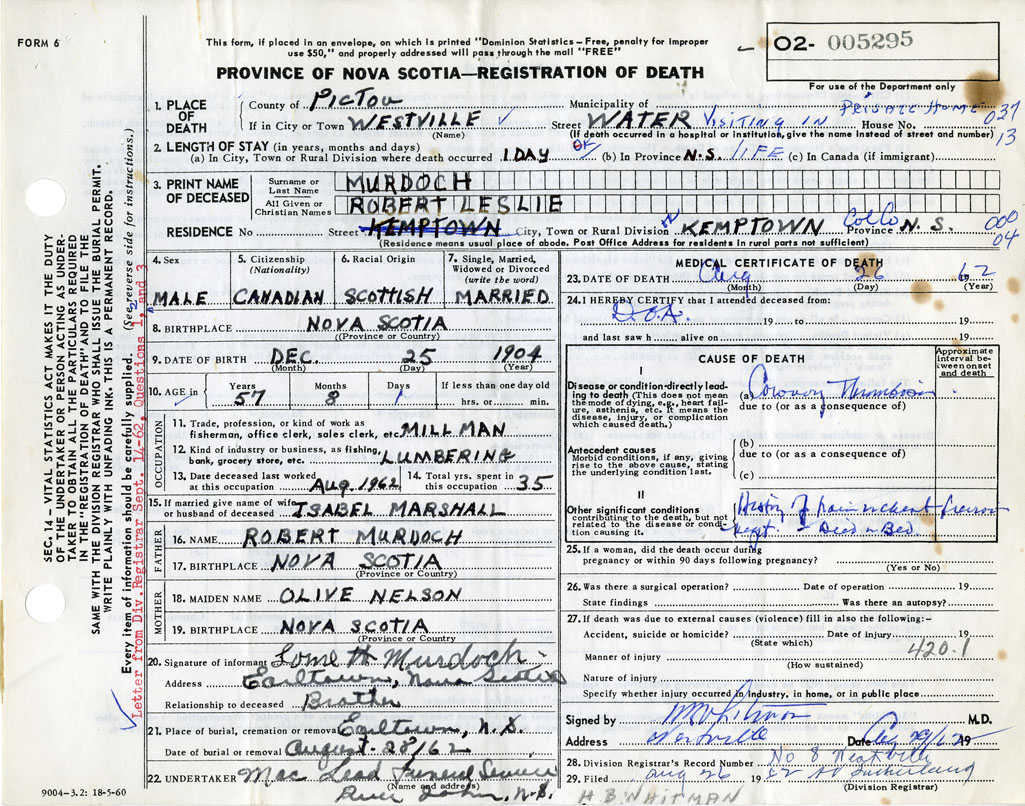 FORM 6
This form, if placed in an envelope, on which is printed "Dominion Statistics – Free, penalty for improper
use $50," and properly addressed will pass through the mail "FREE"
O2- 005295
For use of the Department only
PROVINCE OF NOVA SCOTIA—REGISTRATION OF DEATH
SEC. 14 - VITAL STATISTICS ACT MAKES IT THE DUTY
OF THE UNDERTAKER OR PERSON ACTING AS UNDER-
TAKER TO OBTAIN ALL THE PARTICULARS REQUIRED
IN THE "REGISTRATION OF DEATH" AND TO FILE THE
SAME WITH THE DIVISION REGISTRAR WHO SHALL ISSUE THE BURIAL PERMIT.
WRITE PLAINLY WITH UNFADING INK. THIS IS A PERMANENT RECORD.
Every item of information should be carefully supplied. (See reverse side for instructions.)
Letter from Div. Registrar Sept. 14-62, Questions 1, 2 and 3
1. PLACE OF DEATH
County of PICTOU Municipality of
PRIVATE HOME 027
If in City or Town WESTVILLE Street WATER VISITING IN House No. 13
(Name) (If death occurred in a hospital or institution, give the name instead of street and number)
2. LENGTH OF STAY (in years, months and days)
(a) In City, Town or Rural Division where death occurred 1 DAY (b) In Province N.S. LIFE (c) In Canada (if immigrant)
3. PRINT NAME OF DECEASED
Surname or Last Name MURDOCH
All Given or Christian Names ROBERT LESLIE
RESIDENCE No Street KEMPTOWN City, Town or Rural Division KEMPTOWN Col Co Province N.S. 000
04
(Residence means usual place of abode. Post Office Address for residents in rural parts not sufficient)
4. Sex 5. Citizenship (Nationality) 6. Racial Origin 7. Single, Married, Widowed or Divorced (write the word)
MALE CANADIAN SCOTTISH MARRIED
8. BIRTHPLACE NOVA SCOTIA
(Province or Country)
9. DATE OF BIRTH DEC. 25 1904
(Month) (Day) (Year)
10. AGE in Years Months Days If less than one day old
57 8 1 hrs. or min.
OCCUPATION
11. Trade, profession, or kind of work as
fisherman, office clerk, sales clerk, etc. MILL MAN
12. Kind of industry or business, as fishing,
bank, grocery store, etc. LUMBERING
13. Date deceased last worked at this occupation Aug. 1962 14. Total yrs. spent in this occupation 35
15. If married give name of wife
or husband of deceased ISABEL MARSHALL
FATHER
16. NAME ROBERT MURDOCH
17. BIRTHPLACE NOVA SCOTIA
(Province or Country)
MOTHER
18. MAIDEN NAME OLIVE NELSON
19. BIRTHPLACE NOVA SCOTIA
(Province or Country)
20. Signature of informant Lorne H Murdoch
Address Earltown, Nova Scotia
Relationship to deceased Brother
21. Place of burial, cremation or removal Earltown, N.S.
Date of burial or removal August 28/62
22. UNDERTAKER Mac Lead Funeral Service
(Name and address)
River John, N.S.
9004-3.2: 18-5-60
MEDICAL CERTIFICATE OF DEATH
23. DATE OF DEATH Aug 26 1962
(Month) (Day) (Year)
24. I HEREBY CERTIFY that I attended deceased from:
D.O.A. 19 to 19
and last saw h alive on 19
CAUSE OF DEATH
Approximate interval between onset and death
I
Disease or condition directly lead-
ing to death (This does not mean
the mode of dying, e.g., heart fail-
ure, asthenia, etc. It means the
disease, injury, or complication
which caused death.)
(a) Coronary Thrombosis
due to (or as a consequence of)
Antecedent causes
Morbid conditions, if any, giving
rise to the above cause, stating
the underlying condition last.
(b)
due to (or as a consequence of)
(c)
II
Other significant conditions
contributing to the death, but not
related to the disease or condi-
tion causing it.
History of pain in chest previous
night - Died in Bed
25. If a woman, did the death occur during
pregnancy or within 90 days following pregnancy?
(Yes or No)
26. Was there a surgical operation? Date of operation 19
State findings Was there an autopsy?
27. If death was due to external causes (violence) fill in also the following:-
Accident, suicide or homicide? Date of injury 19
(State which)
420.1
Manner of injury
(How sustained)
Nature of injury
Specify whether injury occurred in industry, in home, or in public place
Signed by HB Whitman M.D.
Address Westville Date Aug 29/62 19
28. Division Registrar's Record Number No 8 Westville
29. Filed Aug 26 19 62 Sutherland
(Division Registrar)
H. B. WHITMAN